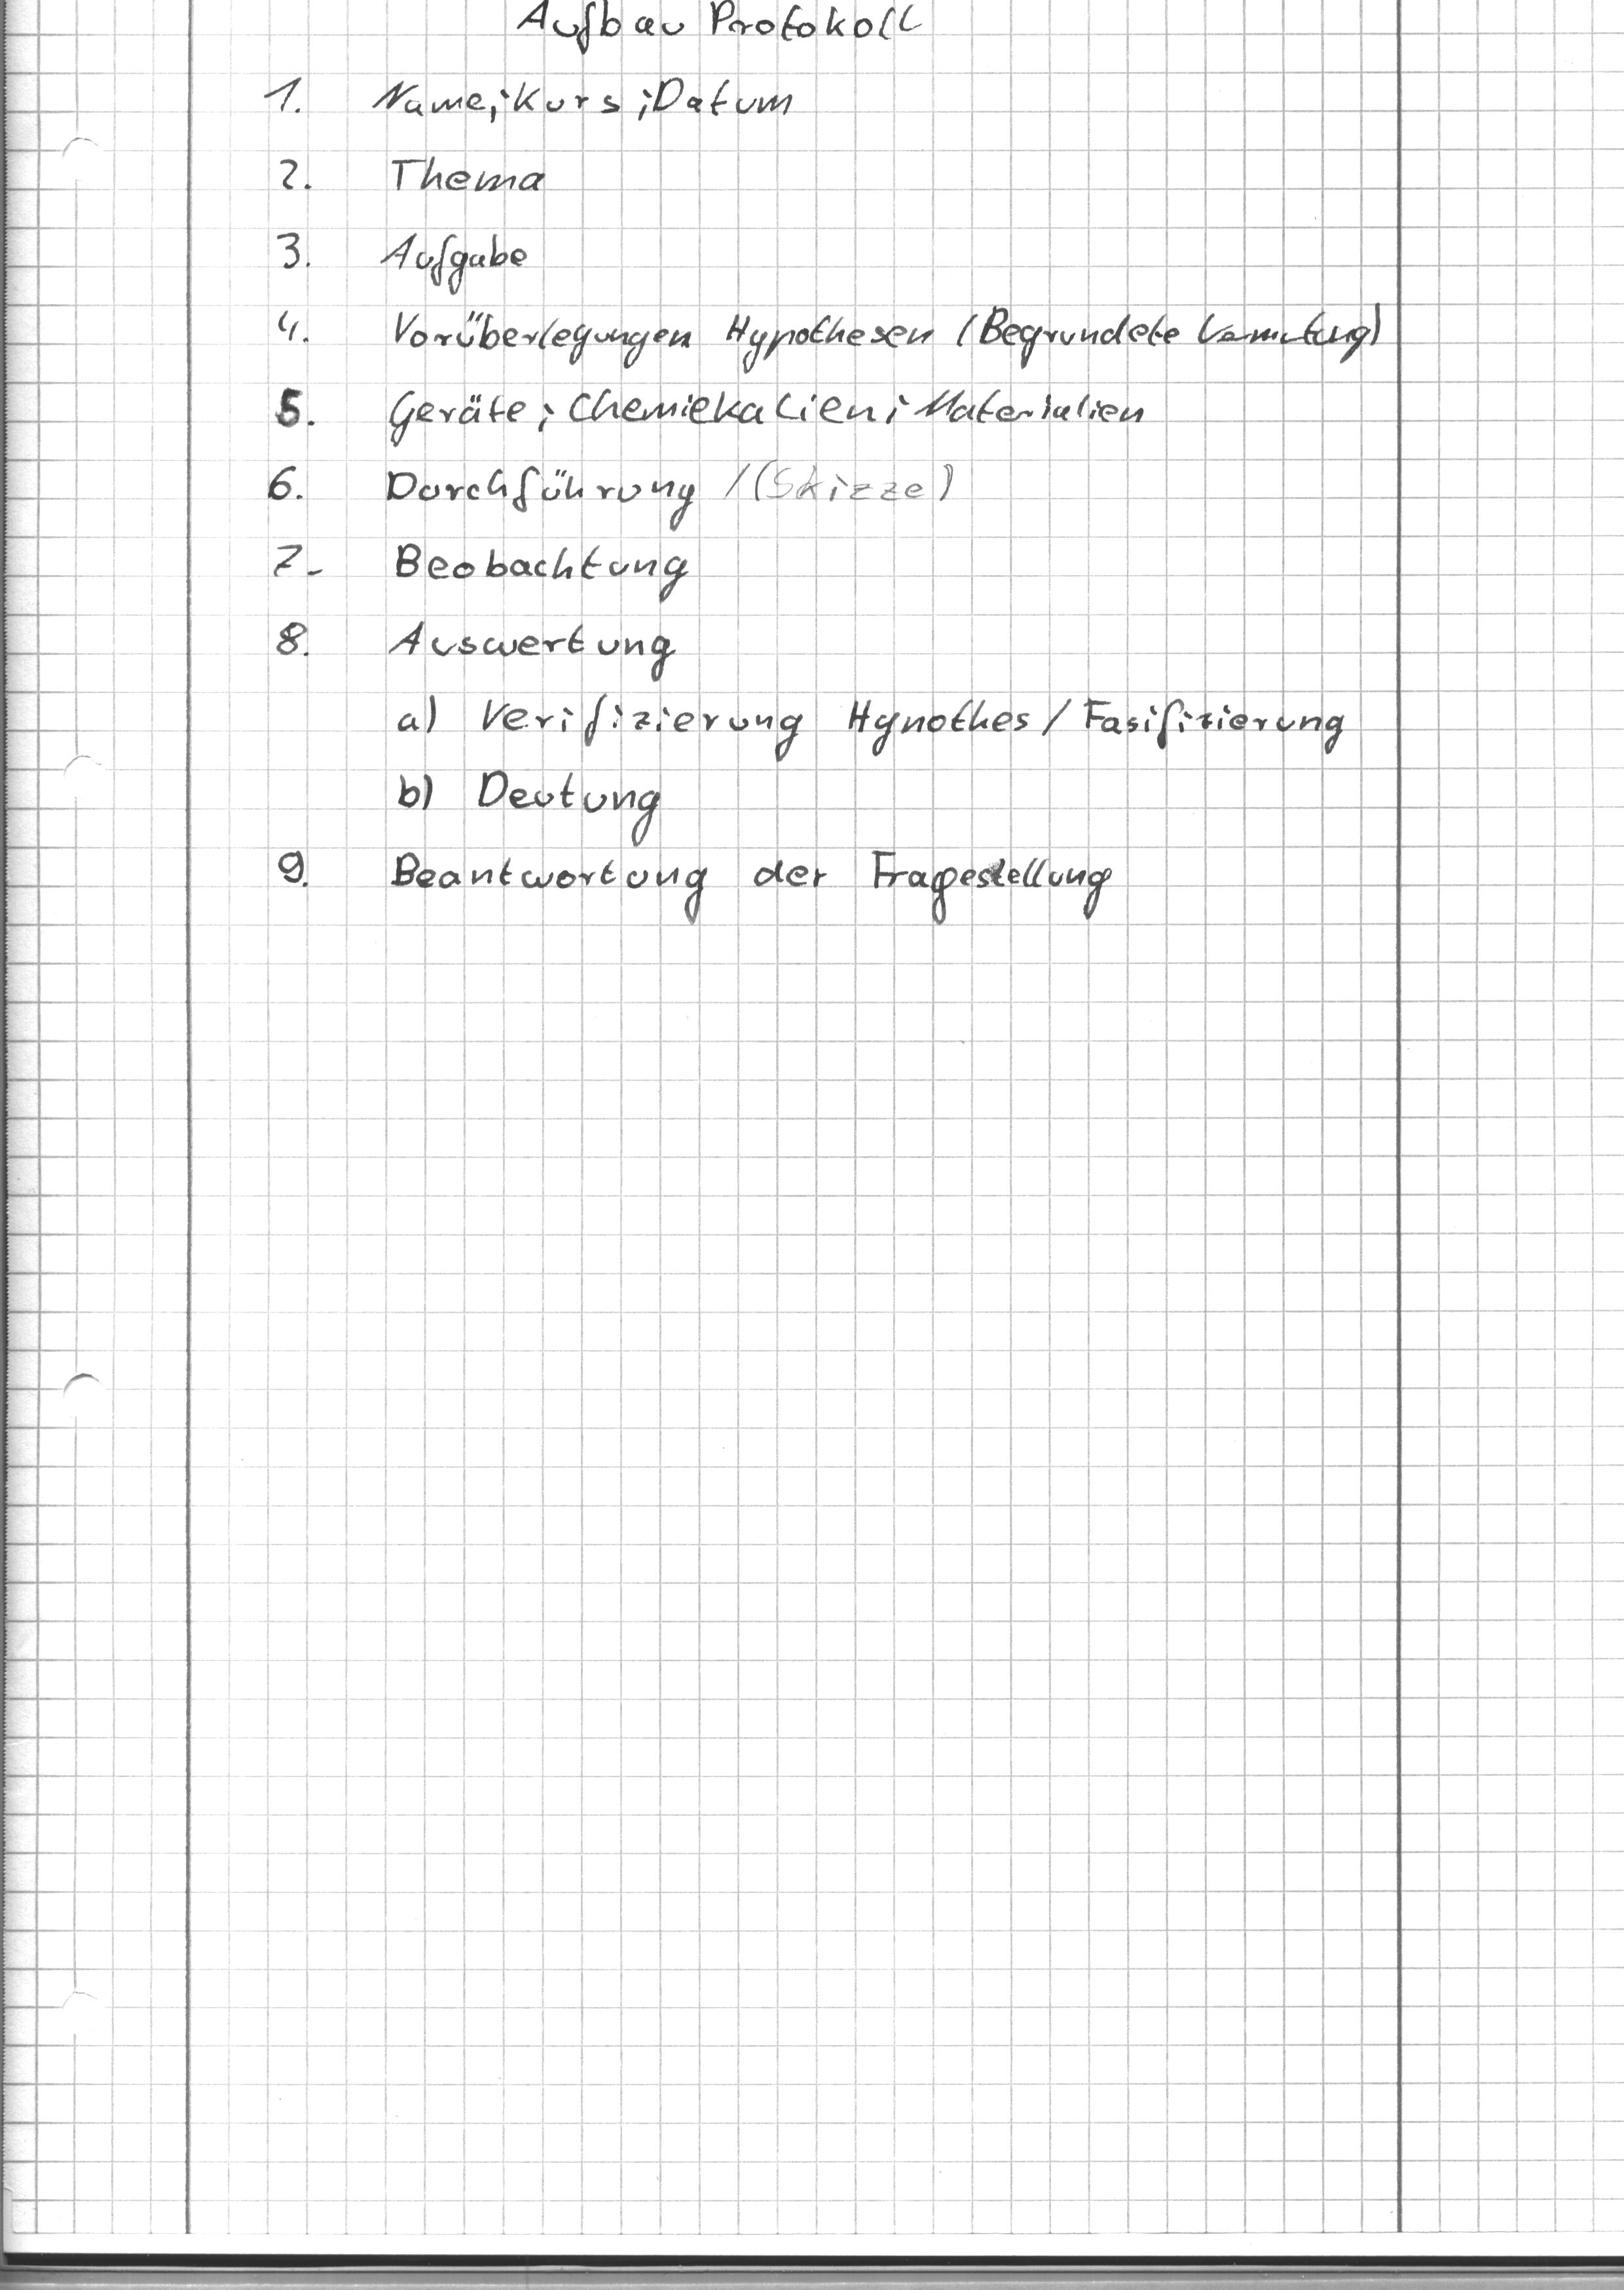 Aufbau Protokoll
1. Name; Kurs; Datum
2. Thema
3. Aufgabe
4. Vorüberlegungen Hypothesen (Begrundete Vermutung)
5. Geräte; Chemiekalien; Materialien
6. Durchführung / (Skizze)
7. Beobachtung
8. Auswertung
a) Verifizierung Hypothes / Fasifizierung
b) Deutung
9. Beantwortung der Fragestellung